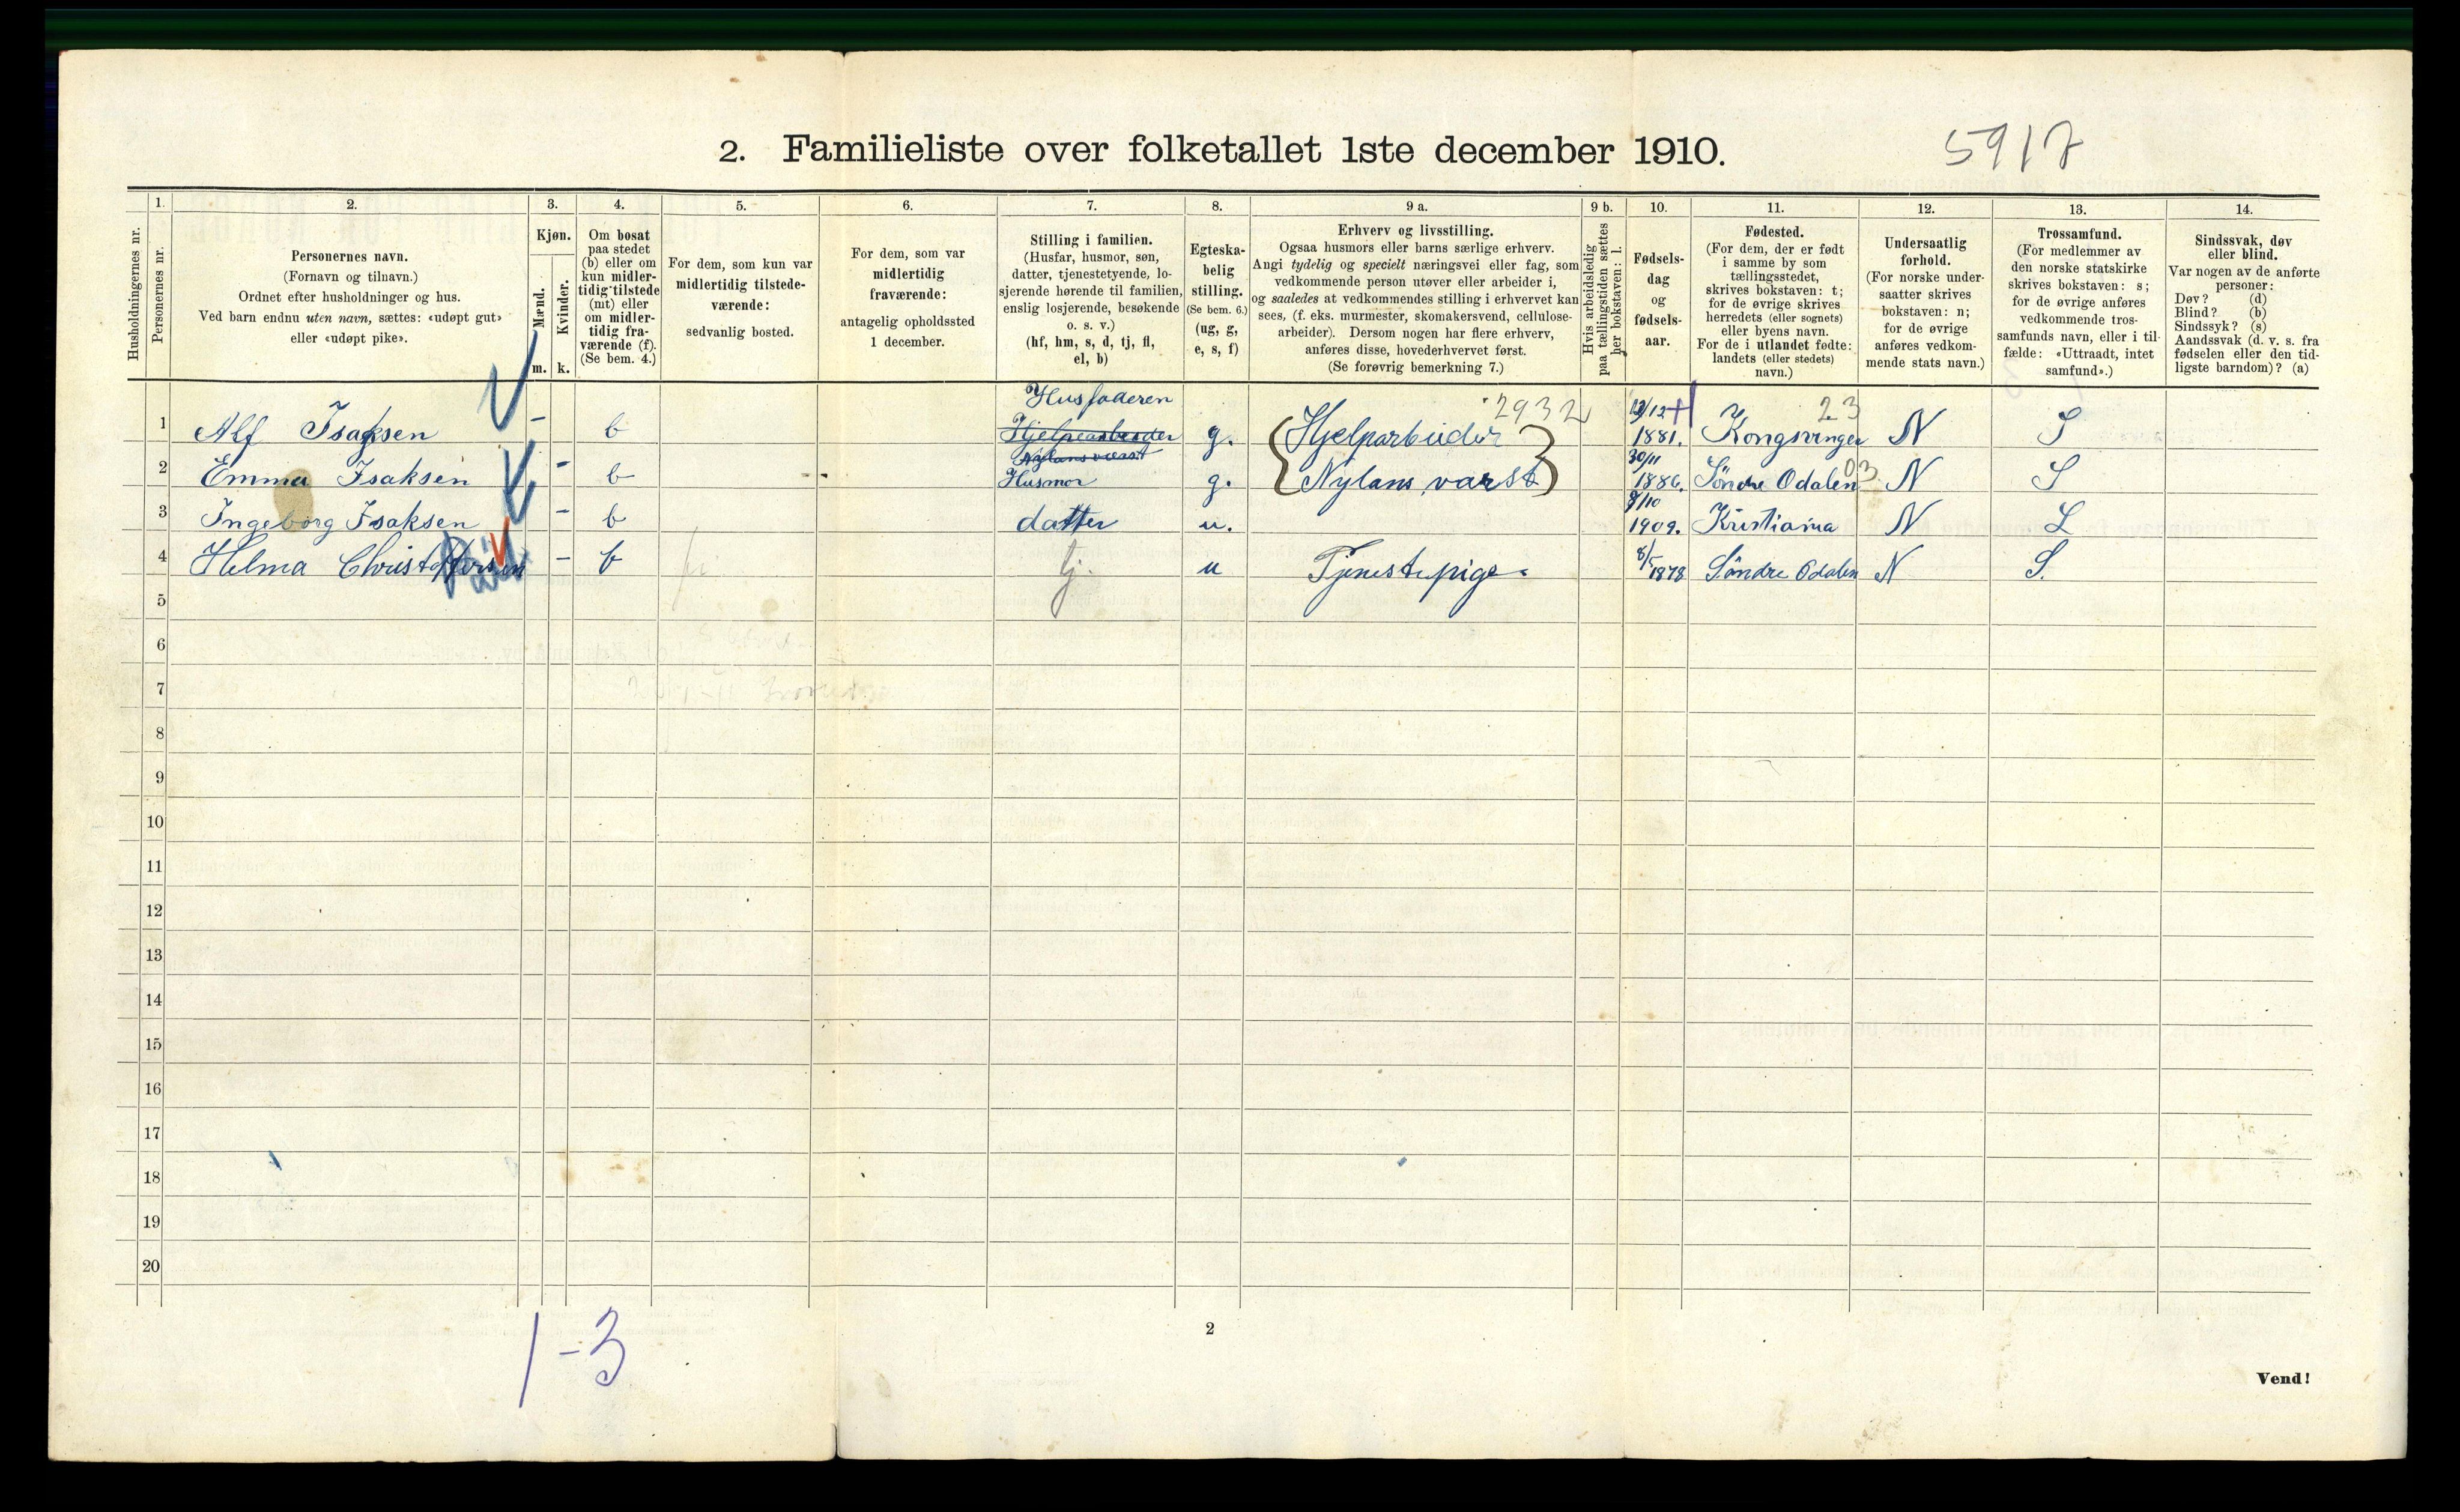 2. Familieliste over folketallet 1ste december 1910.
5917
Husholdningernes nr.
1.
Personernes nr.
2.
Personernes navn.
(Fornavn og tilnavn.)
Ordnet efter husholdninger og hus.
Ved barn endnu uten navn, sættes: «udøpt gut»
eller «udøpt pike».
3.
Kjøn.
Mænd.
Kvinder.
m. k.
4.
Om bosat
paa stedet
(b) eller om
kun midler-
tidig tilstede
(mt) eller
om midler-
tidig fra-
værende (f).
(Se bem. 4.)
5.
For dem, som kun var
midlertidig tilstede-
værende:
sedvanlig bosted.
6.
For dem, som var
midlertidig
fraværende:
antagelig opholdssted
1 december.
7.
Stilling i familien.
(Husfar, husmor, søn,
datter, tjenestetyende, lo-
sjerende hørende til familien,
enslig losjerende, besøkende
o. s. v.)
(hf, hm, s, d, tj, fl,
el, b)
8.
Egteska-
belig
stilling.
(Se bem. 6.)
(ug, g,
e, s, f)
9 a.
Erhverv og livsstilling.
Ogsaa husmors eller barns særlige erhverv.
Angi tydelig og specielt næringsvei eller fag, som
vedkommende person utøver eller arbeider i,
og saaledes at vedkommendes stilling i erhvervet kan
sees, (f. eks. murmester, skomakersvend, cellulose-
arbeider). Dersom nogen har flere erhverv,
anføres disse, hovederhvervet først.
(Se forøvrig bemerkning 7.)
9 b.
Hvis arbeidsledig
paa tællingstiden sættes
her bokstaven: l.
10.
Fødsels-
dag
og
fødsels-
aar.
11.
Fødested.
(For dem, der er født
i samme by som
tællingsstedet,
skrives bokstaven: t;
for de øvrige skrives
herredets (eller sognets)
eller byens navn.
For de i utlandet fødte:
landets (eller stedets)
navn.)
12.
Undersaatlig
forhold.
(For norske under-
saatter skrives
bokstaven: n;
for de øvrige
anføres vedkom-
mende stats navn.)
13.
Trossamfund.
(For medlemmer av
den norske statskirke
skrives bokstaven: s;
for de øvrige anføres
vedkommende tros-
samfunds navn, eller i til-
fælde: «Uttraadt, intet
samfund».)
14.
Sindssvak, døv
eller blind.
Var nogen av de anførte
personer:
Døv? (d)
Blind? (b)
Sindssyk? (s)
Aandssvak (d. v. s. fra
fødselen eller den tid-
ligste barndom)? (a)
Husfaderen 2932 23
1 Alf Isaksen - b Hjelpearbeider g. Hjelparbeider 12/12 1881. Kongsvinger N S
Nylans værst
2 Emma Isaksen - b Husmor g. Nylans varst 30/11 1886. Söndre Odalen 03 N S
3 Ingeborg Isaksen - b datter u. 9/10 1909. Kristiania N S
4 Helma Christoffersen - b tj. u Tjenestepige 8/5 1878 Söndre Odalen N S.
5
6
7
8
9
10
11
12
13
14
15
16
17
18
19
20
1-3
2
Vend!